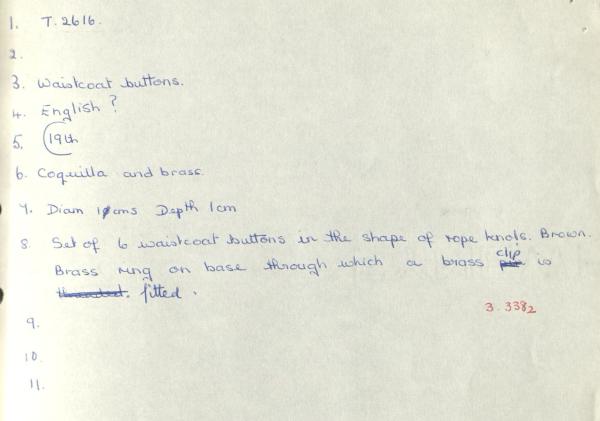 1. T.2616.
2.
3. Waistcoat buttons.
4. English ?
5. 19th
6. Coquilla and brass.
7. Diam 1 cms Depth 1cm
8. Set of 6 waistcoat buttons in the shape of rope knots. Brown.
Brass ring on base through which a brass clip is
threaded. fitted.
3.3382
9.
10.
11.